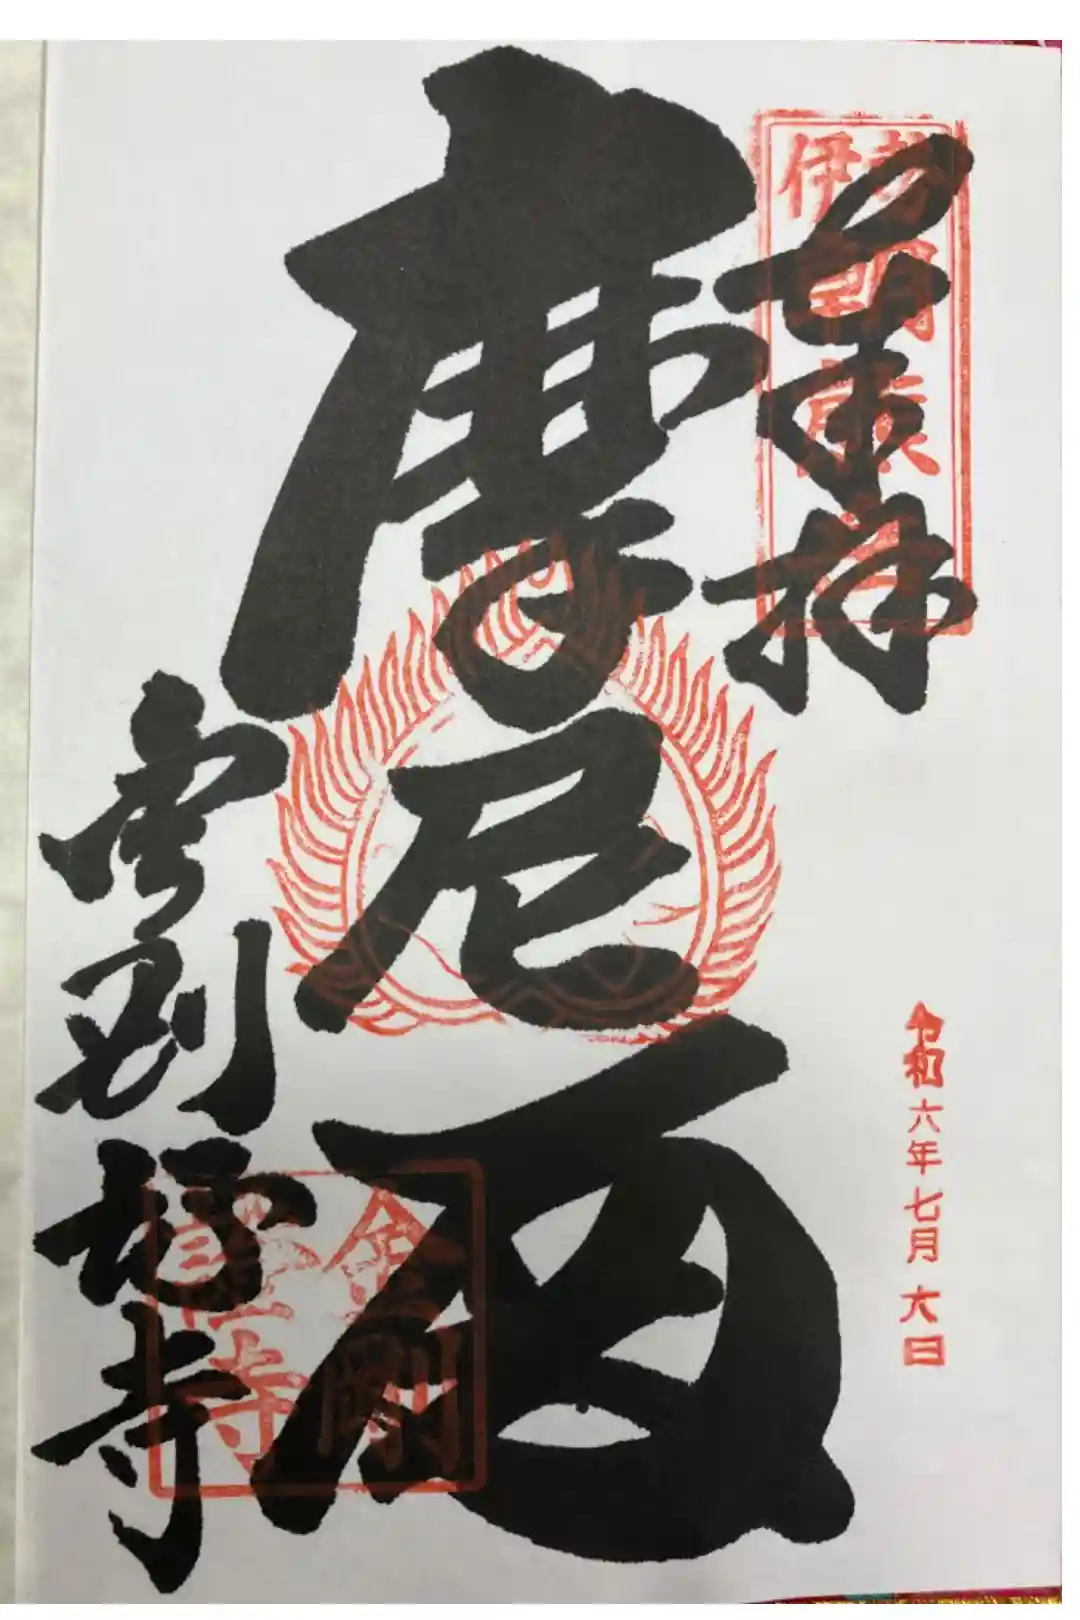 伊勢朝熊
奉拝
摩尼殿
金剛證寺
金剛
證寺
令和六年七月六日